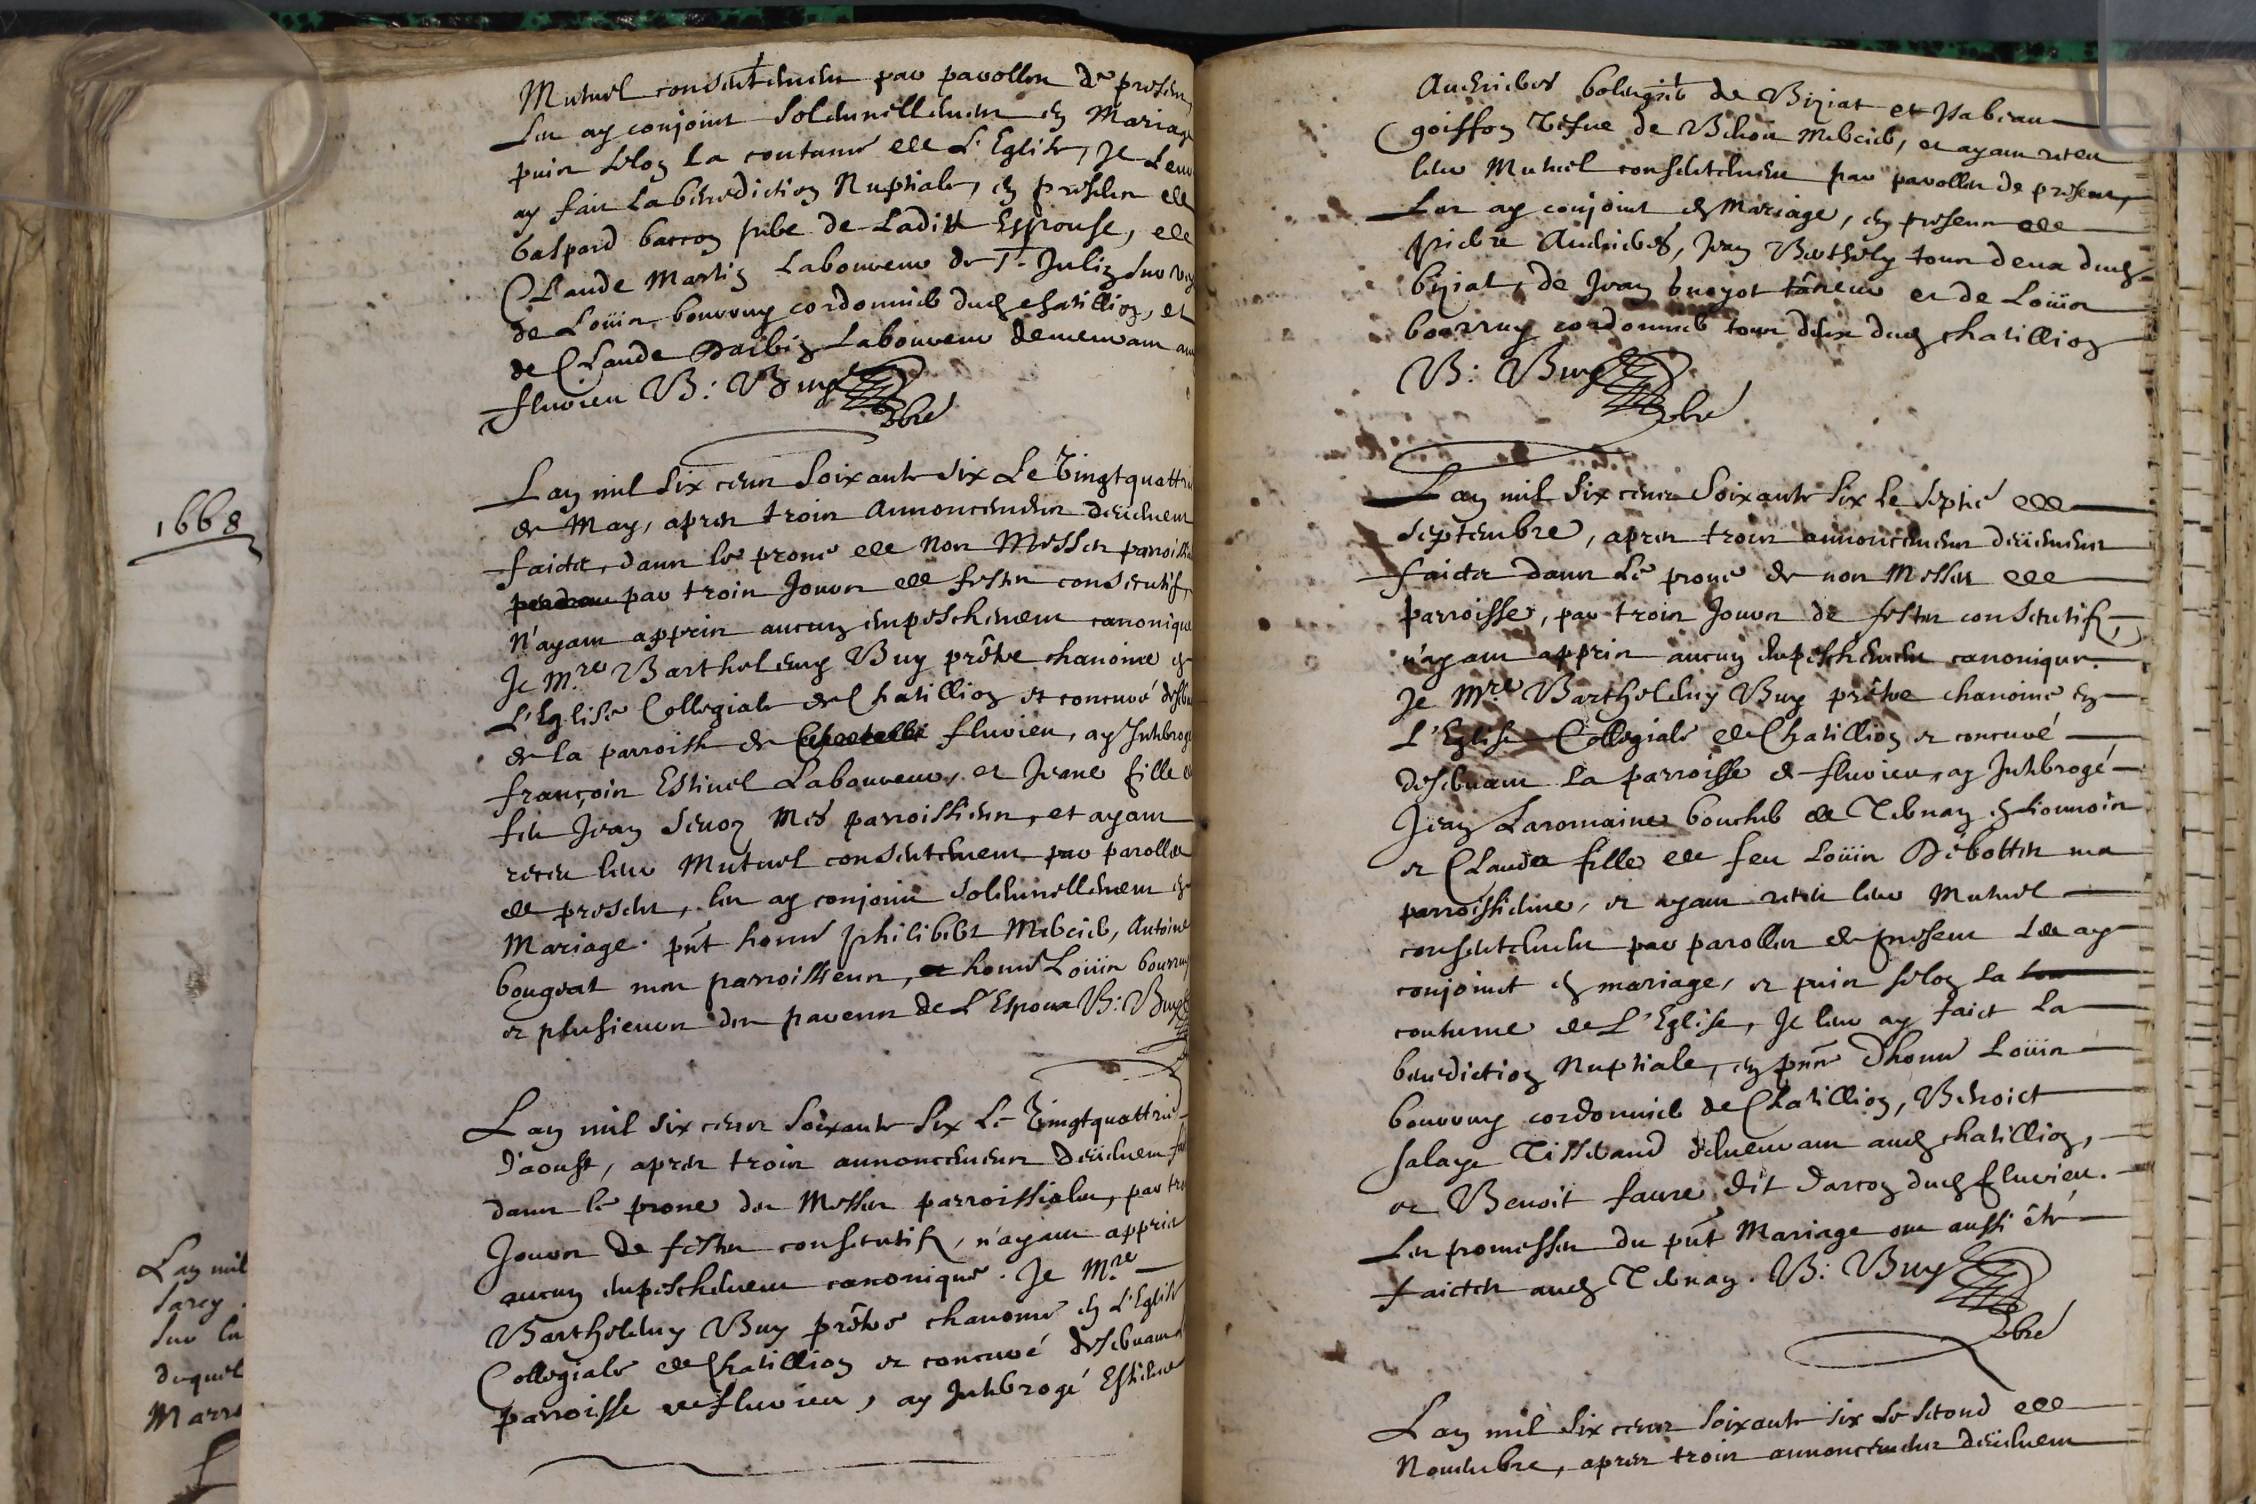 Mutuel consentement par parolles de presen
Les ay conjoint solennellement en Mariage
puis selon la coutume de L'Eglise, Je Leur
ay fait La benediction Nuptiale, en presence de
Gaspard barron pere de Ladite Espouse, de
Claude Martin Laboureur de St Julin sur vey
de Loüis bourruy cordonnier dud chatillion, et
de Claude Darbin Laboureur demeuram au
fluvieu B: Buy
Lan mil six cens soixante six Le vingtquattri
de May, apres trois Annoncemens deüement
faictes dans le prone de nos Messes parroissi
par trois Jours de festes consecutifs
n'ayam appris aucun empeschement canonique
Je Mre Bartholemy Buy prêtre chanoine en
L'Eglise Collegiale de Chatillion et concuré desser
de la parroisse de fluvieu, ay Interrogé
françois Estinel Laboureur, et Jeane fille de
feu Jean Senoz Mes parroissiens, et ayam
receu leur Mutuel consentement par parolles
de present, les ay conjoint solennellement en
Mariage. pnt honn philibert Mercier, Antoine
bougrat mon parroissien, et honn Loüis bourruy
et plusieurs des parens de L'Espoux B: Buy
Lan mil six cens soixante six Le vingtquattrie
d'aoust, apres trois annoncemens deüement fai
dans le prone des Messes parroissiales, par tro
Jours de festes consecutifs, n'ayam appris
aucun empeschement canonique. Je Mre
Bartholemy Buy prêtre chanoine en L'Eglise
Collegiale de Chatillion et concuré desservant
parroisse de fluvieu, ay Interrogé Estiene
1668
Lan mil
sur la
duquel
Marr
Audrieber de Biziat et Isabeau
goiffon vefue de Benoit Mercier, et ayam receu
leur Mutuel consentement par parolles de present,
Les ay conjoint en Mariage, en presence de
pierre Audrieber, Jean Berthely tous deux dud
biziat, de Jean buoyot tâneur et de Loüis
bourruy cordonnier tous deux dud chatillion
B: Buy
Lan mil six cens soixante six le septie de
septembre, apres trois annoncemens deüement
faictes dans Le prone de nos Messes de
parroisse, par trois Jours de festes consecutifs,
n'ayam appris aucun empeschement canonique.
Je Mre Bartholemy Buy prêtre chanoine en
L'Eglise Collegiale de Chatillion et concuré
desservam la parroisse de fluvieu, ay Interrogé
Jean Laromaine boucher de Ternay en Lionnois
et Clauda fille de feu Loüis Debottes ma
parroissiene, et ayam receu leur Mutuel
consentement par parolles de present Les ay
conjoinct en mariage, et puis selon la
coutume de L'Eglise, Je leur ay faict La
benediction Nuptiale, en pnce d'honn Loüis
bourruy cordonnier de Chatillion, Benoict
salaye Tisserand demeuram aud chatillion,
et Benoit faure dit darcon dud fluvieu.
Les promesses du pnt Mariage ont aussi êté
faictes aud Ternay. B: Buy
Lan mil six cens soixante six Le second de
Nouembre, apres trois annoncemens deüement